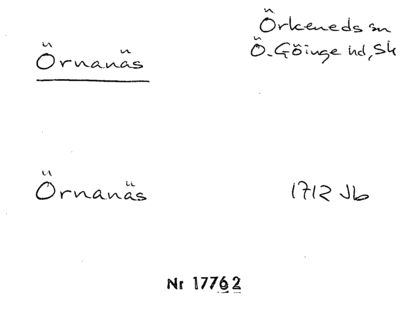 Örnanäs
Örkeneds sn
Ö. Göinge hd, Sk
Örnanäs
1712 Jb
Nr 17762